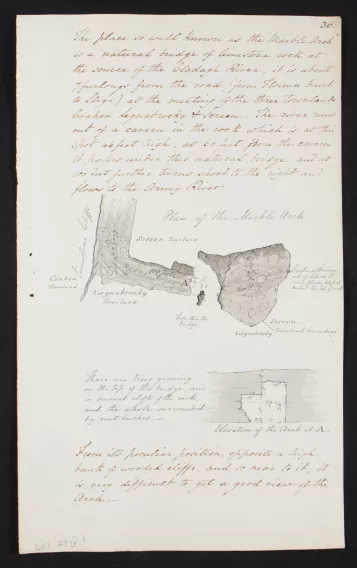 30.
The place so well known as the "Marble Arch"
is a natural bridge of limestone rock at
the source of the Cladagh River, it is about
7 furlongs from the road (from Florence Court
to Sligo) at the meeting of the three townlands
Coaken Legnabrocky & Screen. The river runs
out of a cavern in the rock which is at this
spot feet high, at 60 feet from the cavern
it passes under this natural bridge and at
100 feet further turns short to the right and
flows to the Arney River
Plan of the Marble Arch
Screen Townland
Townland
Legnabrocky
Townland
bridge
Screen
Legnabrocky
Townland boundary
There are trees growing
on the top of this bridge, and
in several clefts of the rock,
and the whole surrounded
by nut bushes.—
Elevation of the Arch at A.
From its peculiar position, opposite a high
bank of wooded cliffs, and so near to it, it
is very difficult to get a good view of the
Arch.—